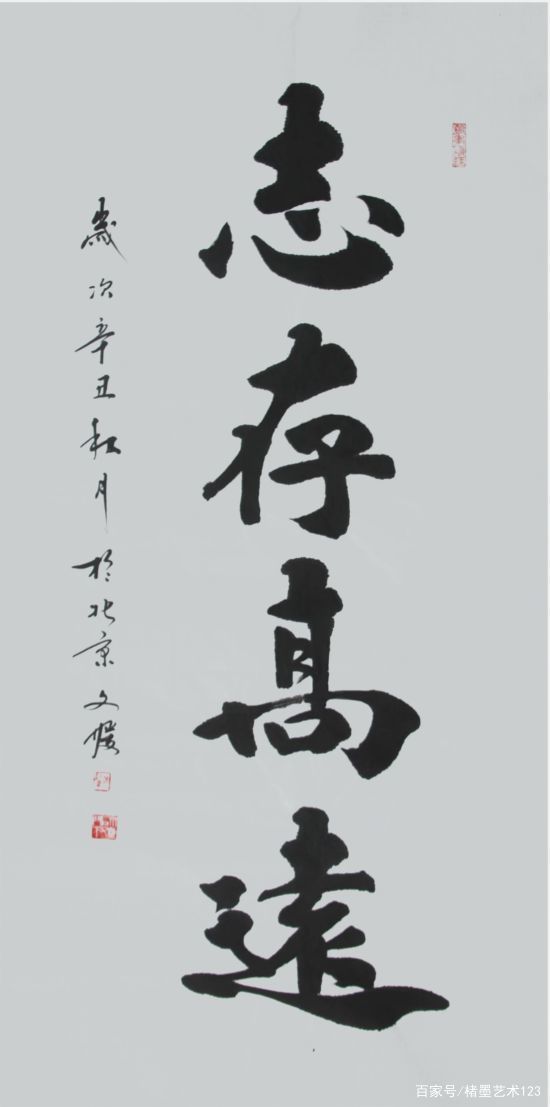 志存高遠
歲次辛丑秋月於北京文
百家号/楮墨艺术123